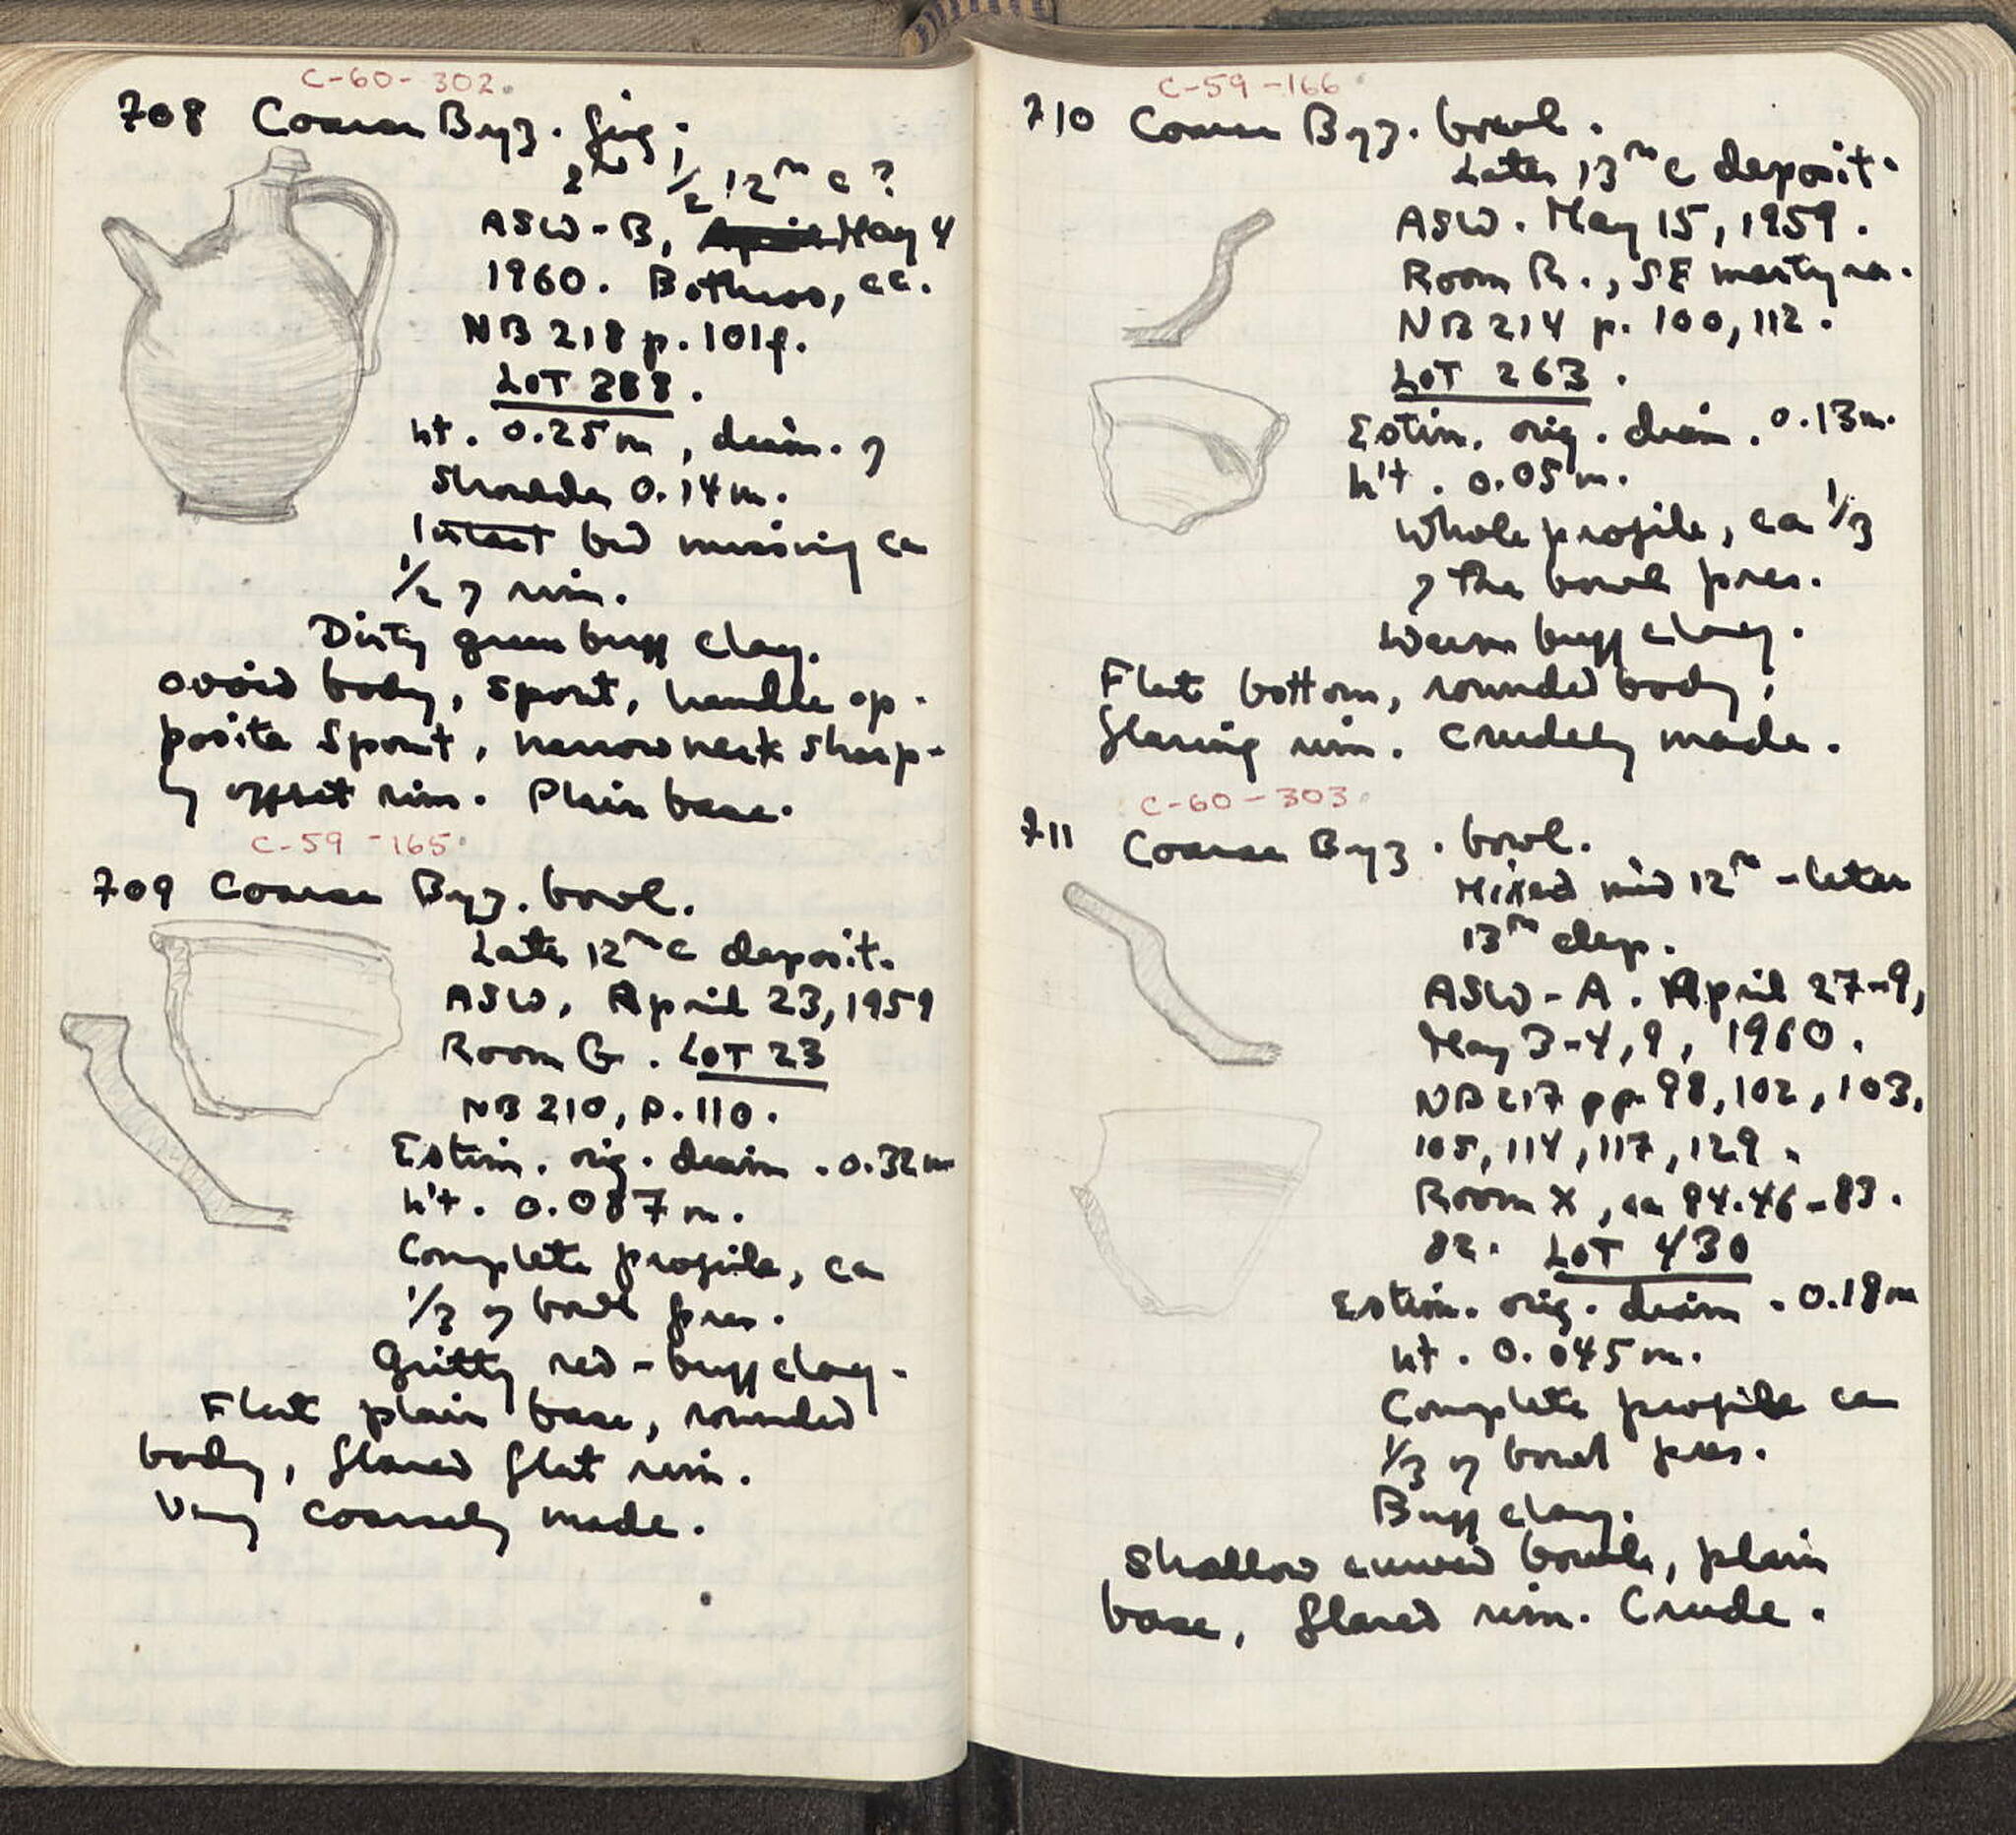 C-60-302.
708 Coarse Byz. jug;
2nd 1/2 12th c?
ASW-B, May 4
1960. Bothros, cc.
NB 218 p. 101f.
LOT 388.
ht. 0.25m, diam. of
Shoulder 0.14m.
Intact but missing ca
1/2 of rim.
Dirty green buff clay.
ovoid body, spout, handle op-
posite spout, narrow neck sharp-
ly offset rim. Plain base.
C-59-165.
709 Coarse Byz. bowl.
Late 12th c deposit.
ASW, April 23, 1959
Room G. LOT 23
NB 210, p. 110.
Estim. orig. diam. 0.32m
h't. 0.087m.
Complete profile, ca
1/3 of bowl pres.
Gritty red-buff clay.
Flat plain base, rounded
body, flared flat rim.
Very coarsely made.
C-59-166
710 Coarse Byz. bowl.
Later 13th c deposit.
ASW. May 15, 1959.
Room R., SE
NB 214 p. 100, 112.
LOT 263.
Estim. orig. diam. 0.13m.
h't. 0.05m.
Whole profile, ca 1/3
of the bowl pres.
Warm buff clay.
Flat bottom, rounded body,
flaring rim. Crudely made.
C-60-303.
711 Coarse Byz. bowl.
Mixed mid 12th - later
13th dep.
ASW-A. April 27-9,
May 3-4, 9, 1960.
NB 217 pp. 98, 102, 103,
105, 114, 117, 129.
Room X, ca 84.46-83.
82. LOT 430
Estim. orig. diam. 0.18m
ht. 0.045m.
Complete profile ca
1/3 of bowl pres.
Buff clay.
Shallow curved bowl, plain
base, flared rim. Crude.